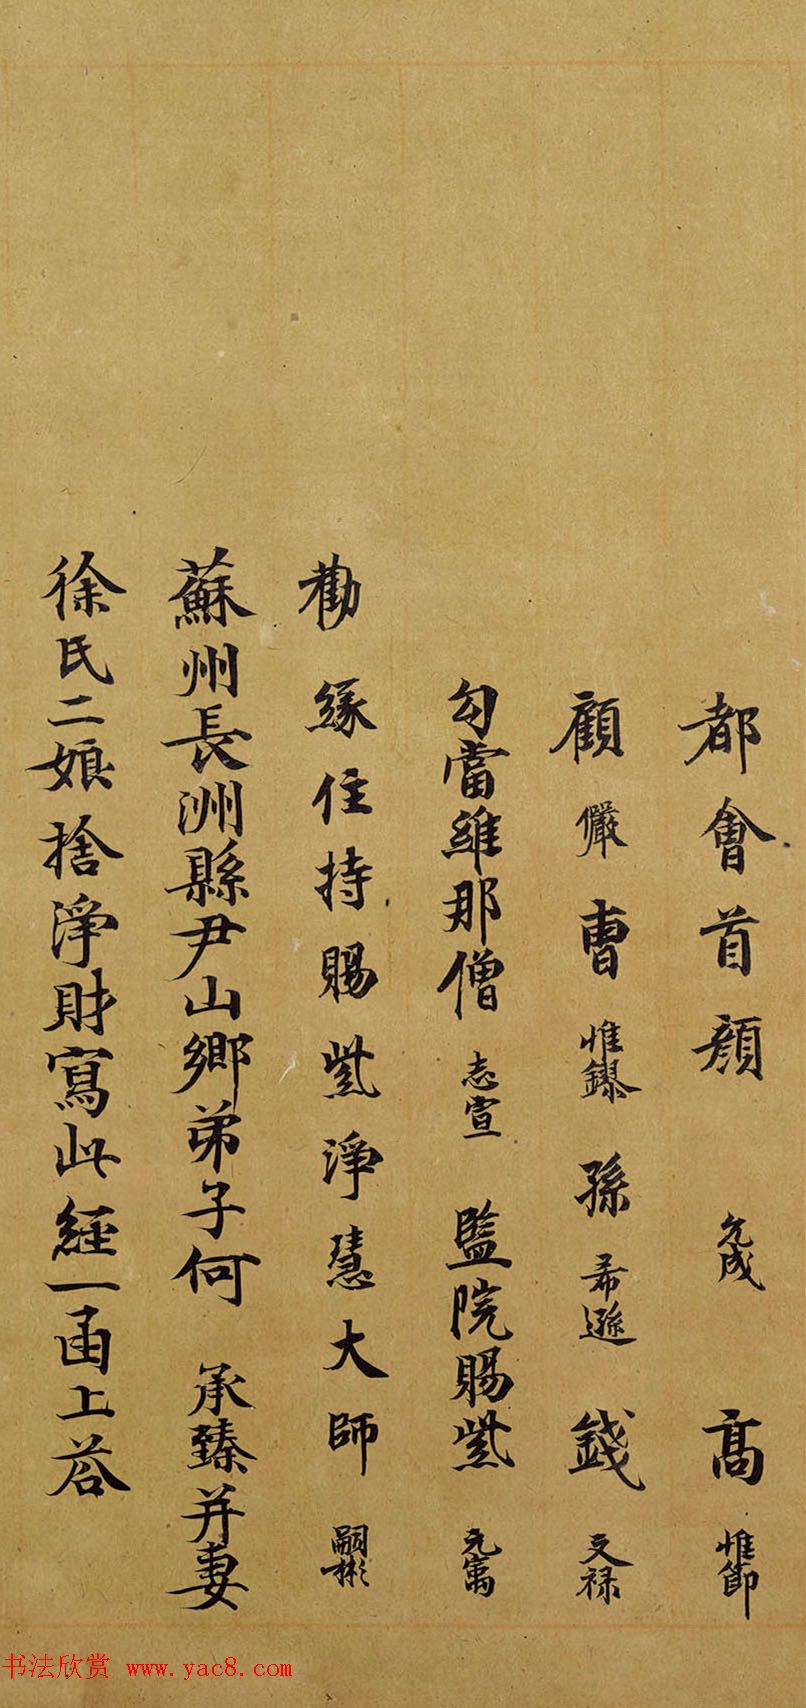 都會首顏 允成 高 惟節
顧 儼 曹 惟鏐 孫 希遜 錢 文禄
勾當維那僧 志宣 監院賜紫 元萬
勸緣住持賜紫淨慧大師 嗣彬
蘇州長洲縣尹山鄉弟子何 承臻并妻
徐氏二娘捨淨財寫此經一函上荅
书法欣赏 www.yac8.com